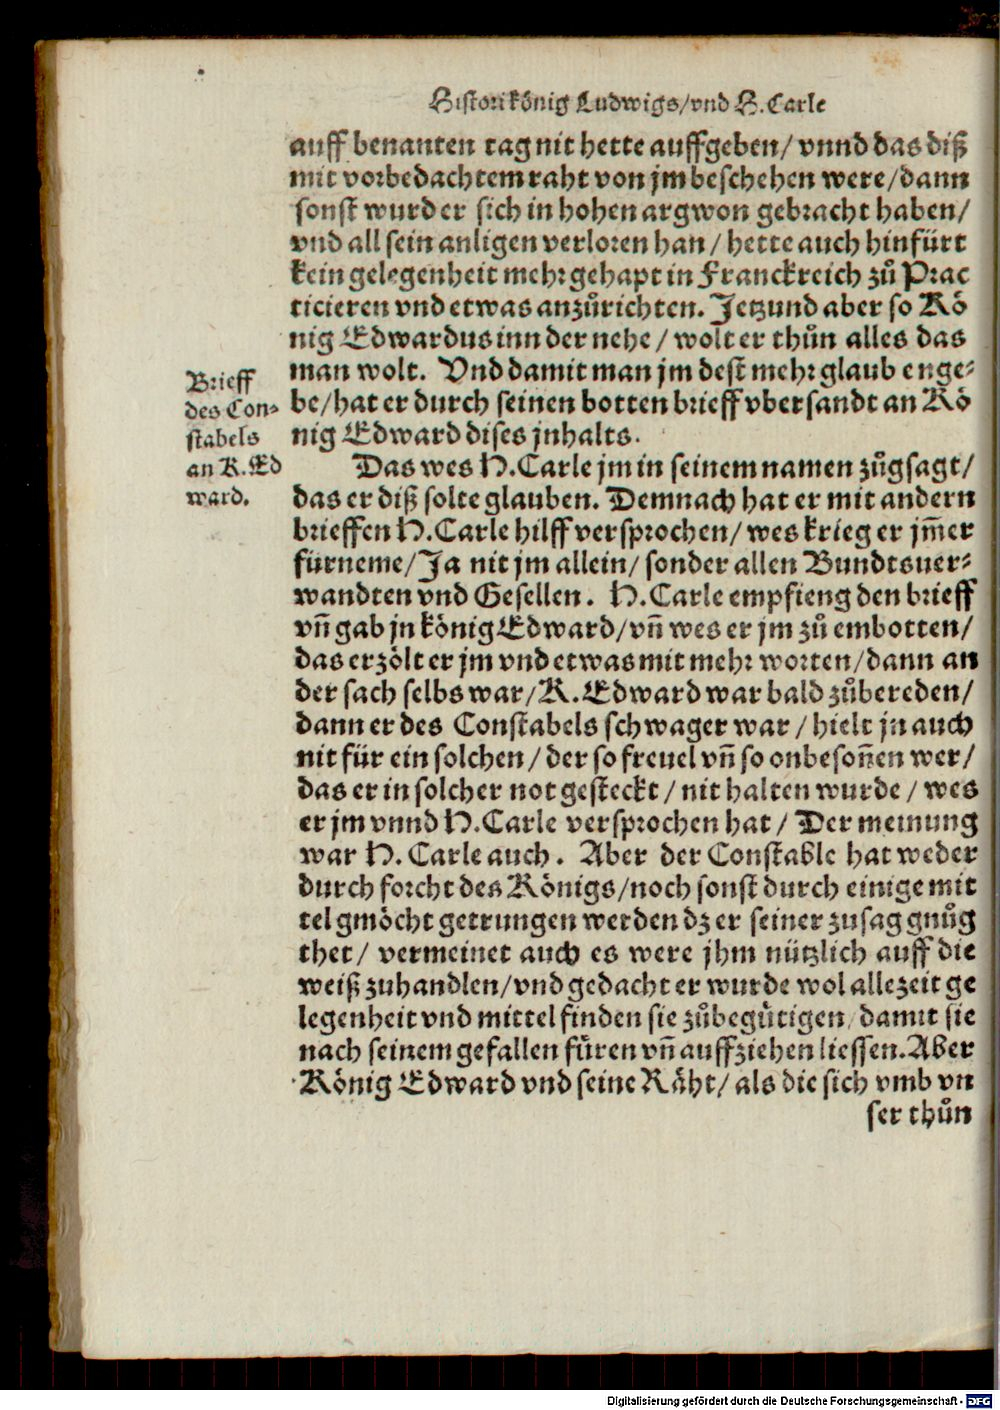 Histori könig Ludwigs/vnd H. Carle
auff benanten tag nit hette auffgeben/ vnnd das diß
mit vorbedachtem raht von jm beschehen were/dann
sonst wurd er sich in hohen argwon gebracht haben/
vnd all sein anligen verloren han/ hette auch hinfürt
kein gelegenheit mehr gehapt in Franckreich zů Prac
ticieren vnd etwas anzůrichten. Jetzund aber so Kö
nig Edwardus inn der nehe/ wolt er thůn alles das
man wolt. Vnd damit man jm dest mehr glaub enge⸗
be/hat er durch seinen botten brieff vbersandt an Kö
nig Edward dises jnhalts.
Brieff
des Con⸗
stabels
an K. Ed
ward.
Das wes H. Carle jm in seinem namen zůgsagt/
das er diß solte glauben. Demnach hat er mit andern
brieffen H. Carle hilff versprochen/ wes krieg er jm̃er
fürneme/ Ja nit jm allein/ sonder allen Bundtsuer⸗
wandten vnd Gesellen. H. Carle empfieng den brieff
vñ gab jn könig Edward/vñ wes er jm zů embotten/
das erzölt er jm vnd etwas mit mehr worten/dann an
der sach selbs war/K. Edward war bald zůbereden/
dann er des Constabels schwager war/ hielt jn auch
nit für ein solchen/ der so freuel vñ so onbesoñen wer/
das er in solcher not gesteckt/ nit halten wurde/ wes
er jm vnnd H. Carle versprochen hat/ Der meinung
war H. Carle auch. Aber der Constable hat weder
durch forcht des Königs/noch sonst durch einige mit
tel gmöcht getrungen werden dz er seiner zusag gnůg
thet/ vermeinet auch es were jhm nützlich auff die
weiß zuhandlen/vnd gedacht er wurde wol allezeit ge
legenheit vnd mittel finden sie zůbegütigen/ damit sie
nach seinem gefallen füren vñ auffziehen liessen. Aber
König Edward vnd seine Räht/ als die sich vmb vn
ser thůn
Digitalisierung gefördert durch die Deutsche Forschungsgemeinschaft - DFG